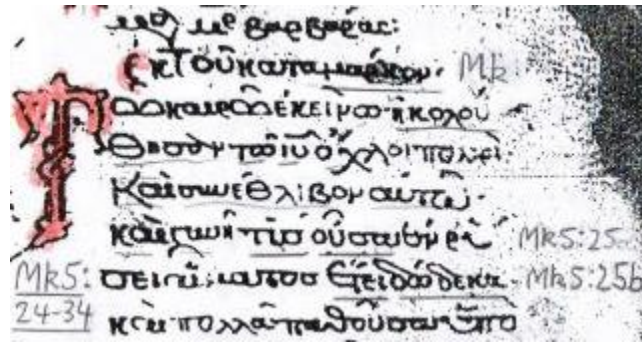 βαρβαρας:
ἐκ τοῦ κατα μαρκον· Mk
Τω καιρω ἐκείνω ἠκολού
θησαν τῶ ιῦ ὄχλοι πολλοὶ·
Και συνέθλιβον αυτῶ·
καὶ γυνὴ τὶσ οὖσα ἐν ρύ Mk5:25a
Mk5: σει αἵματοσ ἔτει δώδεκα· Mk5:25b
24-34 καὶ πολλὰ παθοῦσα ὑπὸ